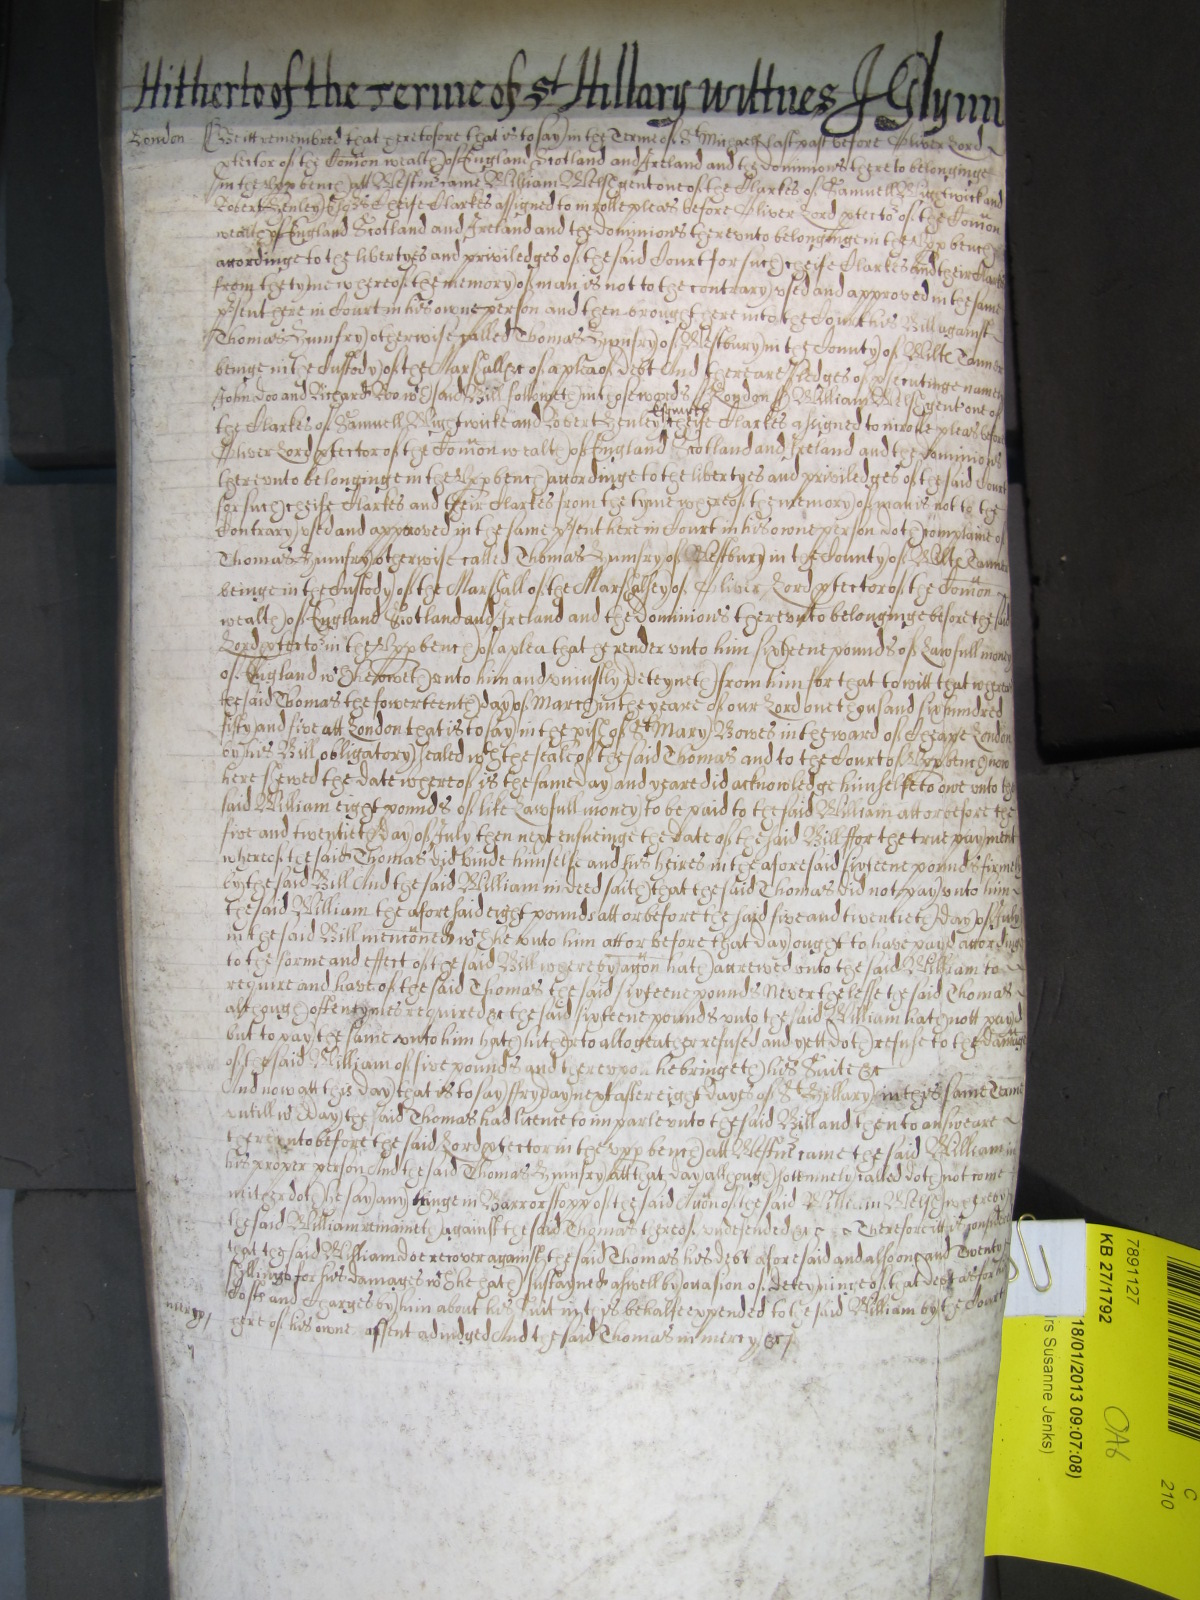 Hitherto of the Terme of St Hillary wittnes J Glynn
London Be itt remembred that heretofore that is to say in the Terme of St Michaell last past before Oliver Lord
ptector of the Comon wealth of England Scotland and Ireland and the dominions thereto belonginge
in the Upp bench att Westm came William Welsh gent one of the Clarkes of Samuell Wightwick and
Robert Henley Cheife Clarkes assigned to inrolle pleas before Oliver Lord ptector of the Comon
wealth of England Scotland and Ireland and the dominions therevnto belonginge in the Upp bench
accordinge to the libertyes and priviledges of the said Court for such cheife Clarkes and their Clarkes
from the tyme whereof the memory of man is not to the contrary vsed and approved in the same
psent here in Court in his owne person and then brought here into the Court his Bill against
Thomas Humfry otherwise called Thomas Humfry of Westbury in the County of Wilts Tanner
beinge in the Custody of the Marshall &c of a plea of Debt And there are pledges of psecutinge namely
John Doo and Richard Roo wch said Bill followeth in these words London William Welsh gent one of
the Clarkes of Samuell Wightwicke and Robert Henley Esquires cheife Clarkes assigned to inrolle pleas before
Oliver Lord ptector of the Comon wealth of England Scotland and Ireland and the dominions
therevnto belonginge in the Upp bench accordinge to the libertyes and priviledges of the said Court
for such cheife Clarkes and their Clarkes from the tyme whereof the memory of man is not to the
Contrary vsed and approved in the same psent here in Court in his owne person doth complaine of
Thomas Humfry otherwise called Thomas Humfry of Westbury in the County of Wilts Tanner
beinge in the Custody of the Marshall of the Marshalsey of Oliver Lord ptector of the Comon
wealth of England Scotland and Ireland and the Dominions therevnto belonginge before the said
Lord ptector in the Upp bench of a plea that he render vnto him sixteene pounds of Lawfull money
of England wch he oweth vnto him and vniustly deteyneth from him for that to witt that whereas
the said Thomas the fowerteenth day of March in the yeare of our Lord one thousand six hundred
fifty and five att London that is to say in the pish of St Mary Bowes in the ward of Cheape London
by his Bill obligatory sealed wth the seale of the said Thomas and to the Court of Upp bench now
here shewed the date whereof is the same day and yeare did acknowledge himselfe to owe vnto the
said William eight pounds of like Lawfull money to be paid to the said William att or before the
five and twentieth day of July then next ensueinge the date of the said Bill ffor the true payment
whereof the said Thomas did binde himselfe and his heires in the aforesaid sixteene pounds firmely
by the said Bill And the said William in deed saith that the said Thomas did not pay vnto him
the said William the aforesaid eight pounds att or before the said five and twentieth day of July
in the said Bill mencioned wch he vnto him att or before that day ought to have payd accordinge
to the forme and effect of the said Bill whereby accon hath accrewed vnto the said William to
require and have of the said Thomas the said sixteene pounds Neverthelesse the said Thomas
although oftentymes required &c the said sixteene pounds vnto the said William hath nott payd
but to pay the same vnto him hath hitherto altogeather refused and yett doth refuse to the damage
of the said William of five pounds and therevpon he bringeth his Suite &c
And now att this day that is to say ffryday next after eight dayes of St Hillary in this same Terme
vntill wch day the said Thomas had licence to imparle vnto the said Bill and then to answeare
therevnto before the said Lord ptector in the vpp bench att Westm came the said William in
his proper person And the said Thomas Humfry att that day although solemnely called doth not come
neither doth he say any thinge in Barr or stopp of the said Accon of the said William Welsh whereby
the said William remaineth against the said Thomas thereof vndefended &c Therefore itt is considered
that the said William doe recover against the said Thomas his debt aforesaid and alsoe and Twenty
shillings for his damages wch he hath susteyned aswell by occasion of deteyninge of that debt as for his
Costs and Charges by him about his suit in this behalfe expended to the said William by the Court
mercy here of his owne assent adiudged And the said Thomas in mercy &c
7891127
KB 27/1792
18/01/2013 09:07:08)
rs Susanne Jenks)
OA6
C
210